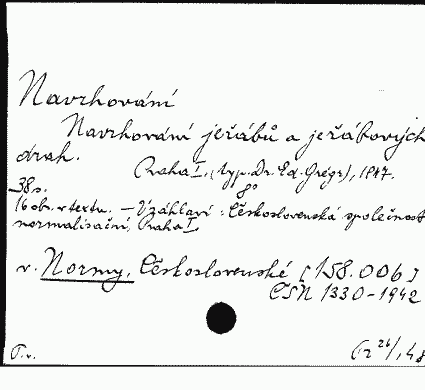 Navrhování
Navrhování jeřábů a jeřábových
drah.
Praha I, (typ. Dr. Ed. Grégr), 1947.
38 s. 8°
16 obr. v textu. — V záhlaví: Československá společnost
normalisační, Praha I
v. Normy, Československé [158.006]
ČSN 1330-1942
T.v.